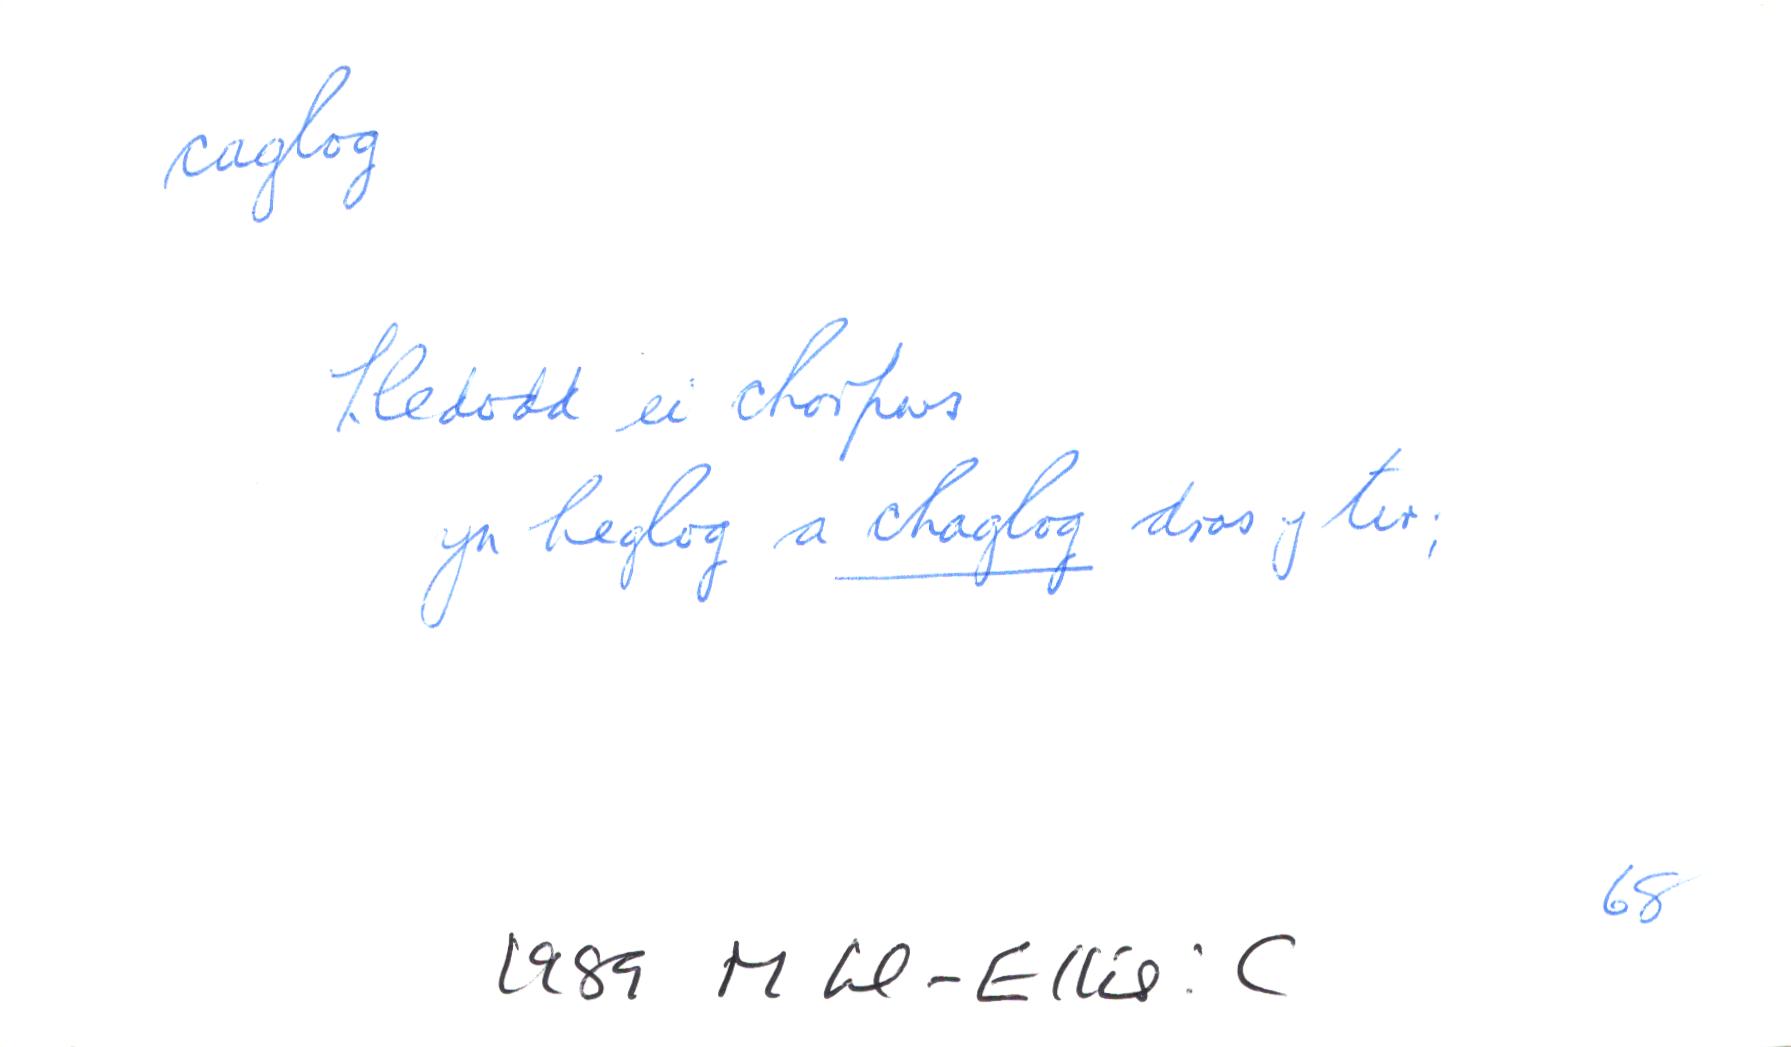 caglog
Lledodd ei chorpws
yn heglog a chaglog dros y tir;
68
1989 M Ll-Ellis: C